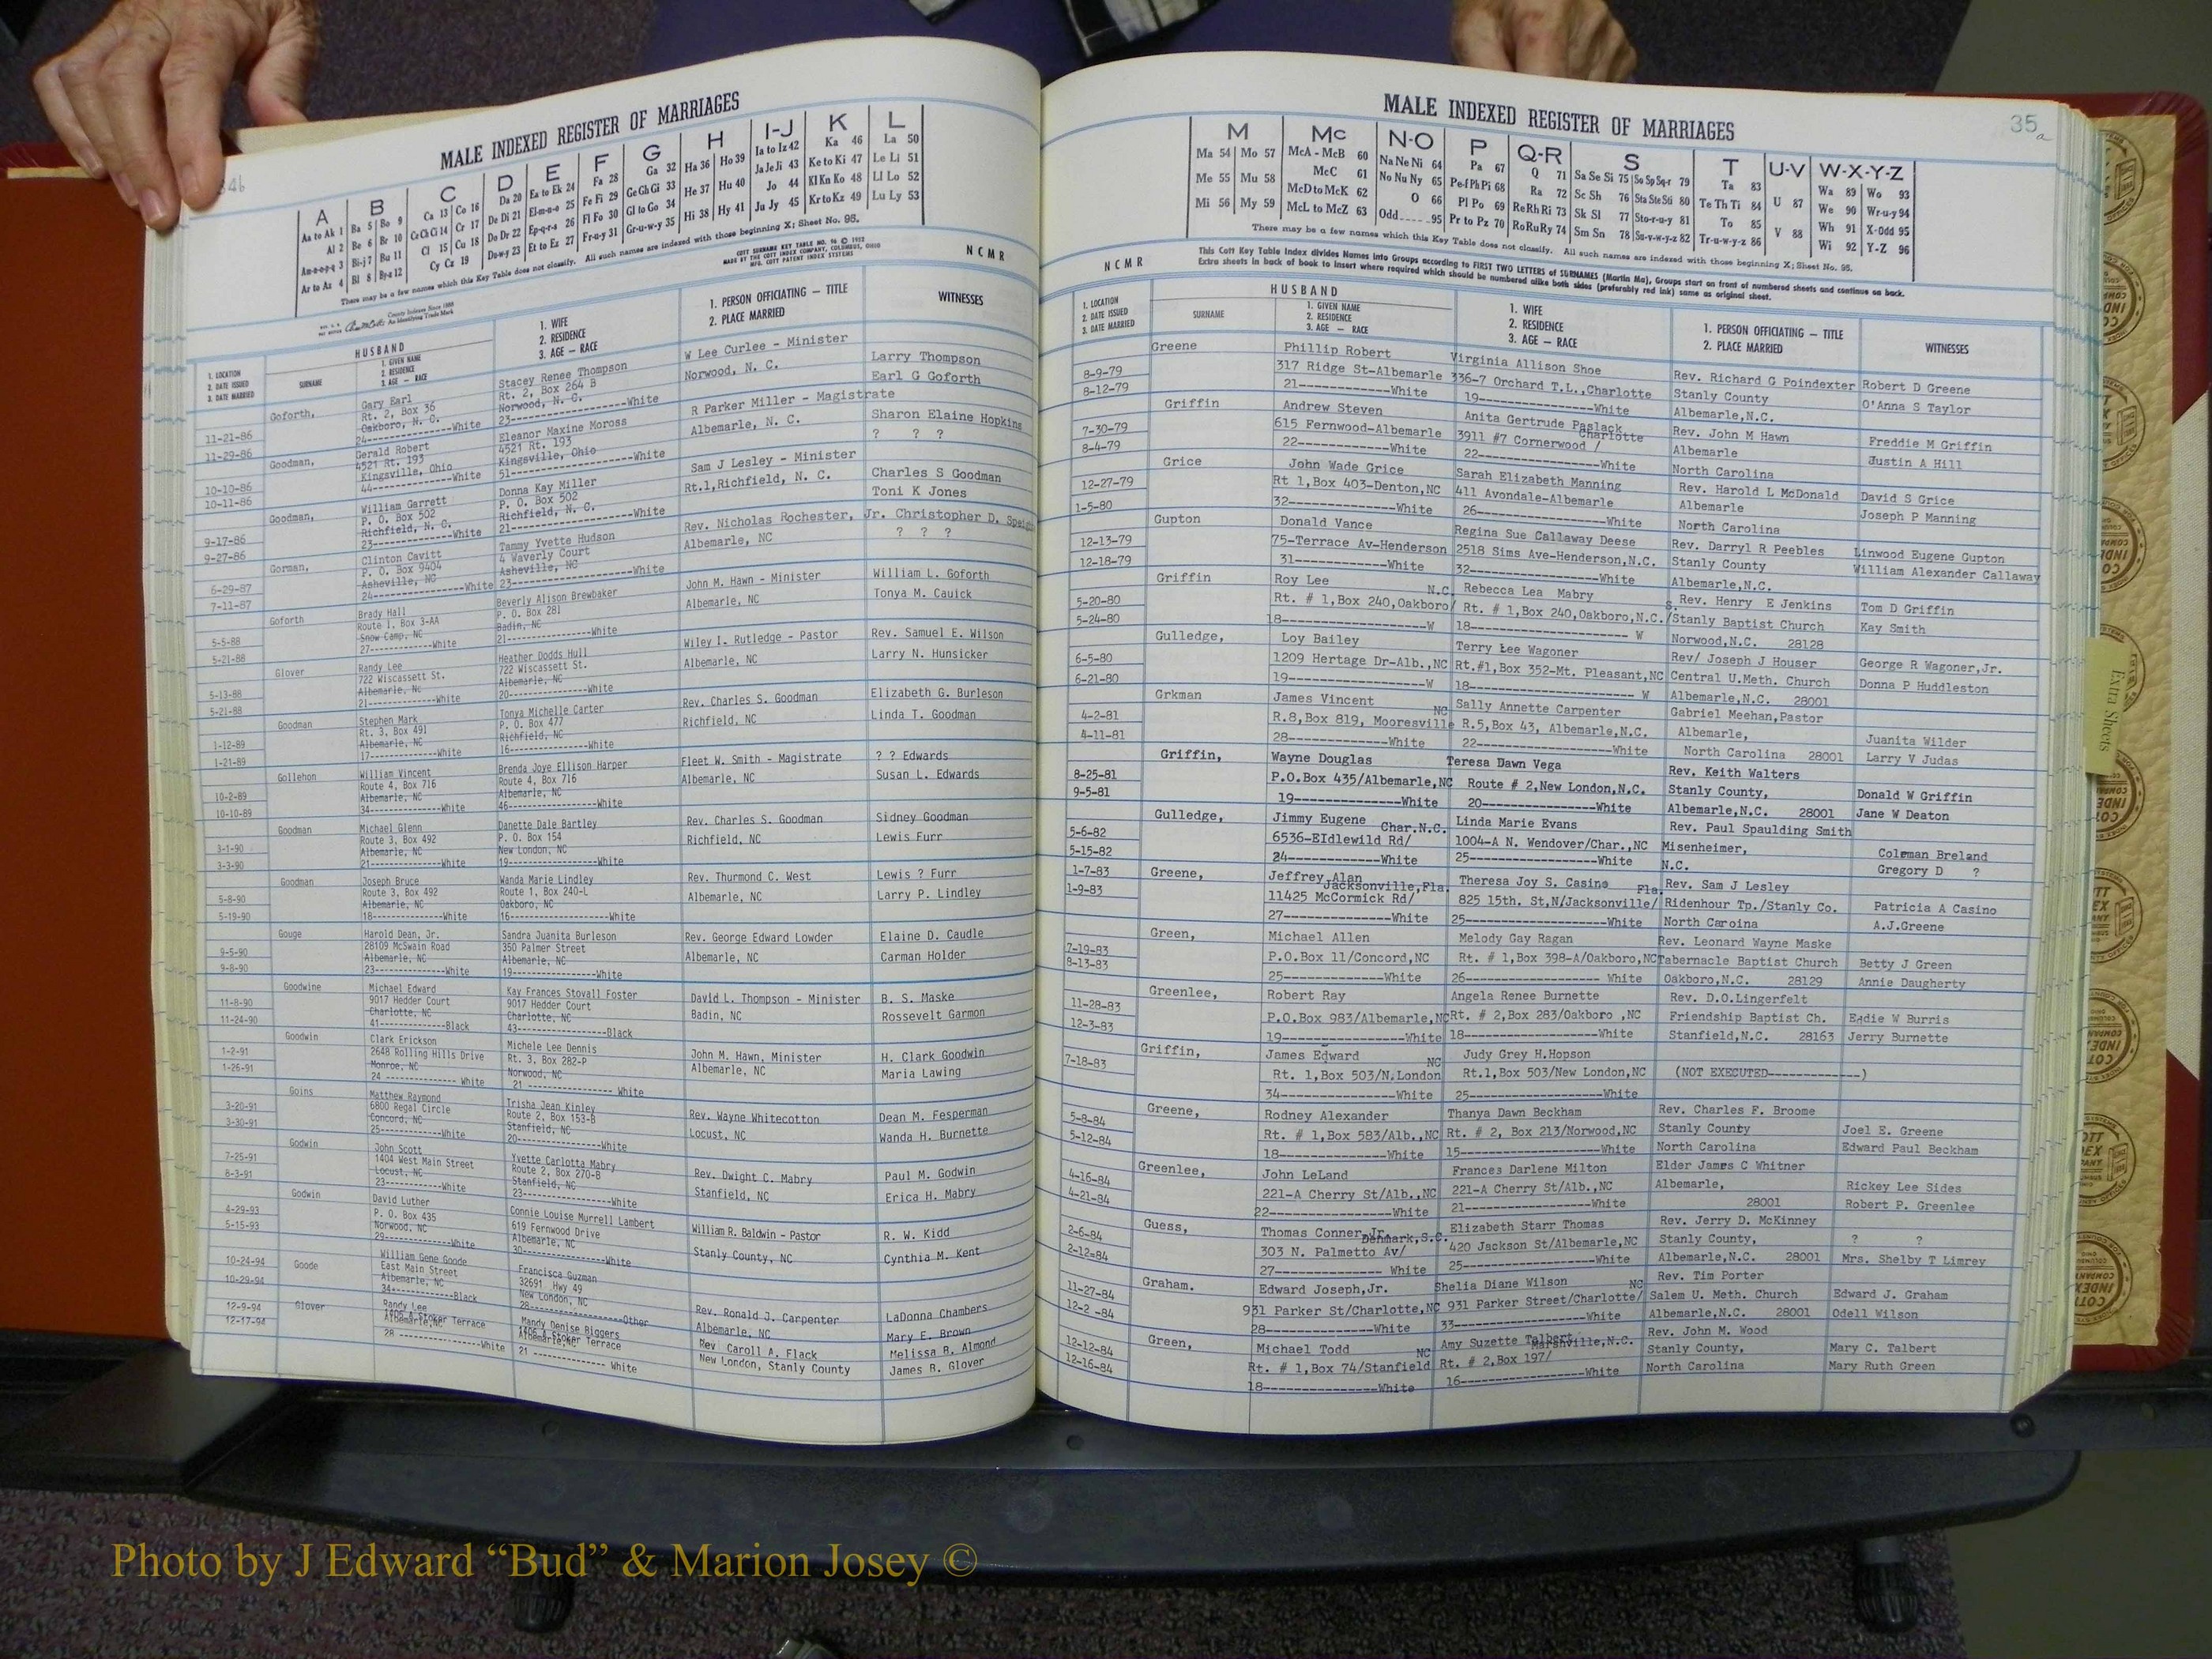 34b
MALE INDEXED REGISTER OF MARRIAGES
A B C D E F G H I-J K L
Aa to Ak 1 Ba 5 Bo 9 Ca 13 Co 16 Da 20 Ea to Ek 24 Fa 28 Ga 32 Ha 36 Ho 39 Ia to Iz 42 Ka 46 La 50
Al 2 Be 6 Br 10 Ce Ch Ci 14 Cr 17 De Di 21 El-m-n-o 25 Fe Fi 29 Ge Gh Gi 33 He 37 Hu 40 Ja Je Ji 43 Ke to Ki 47 Le Li 51
Am-n-o-p-q 3 Bi-j 7 Bu 11 Cl 15 Cu 18 Do Dr 22 Ep-q-r-s 26 Fl Fo 30 Gl to Go 34 Hi 38 Hy 41 Jo 44 Kl Kn Ko 48 Ll Lo 52
Ar to Az 4 Bl 8 By-z 12 Cy Cz 19 Du-w-y 23 Et to Ez 27 Fr-u-y 31 Gr-u-w-y 35 Ju Jy 45 Kr to Kz 49 Lu Ly 53
There may be a few names which this Key Table does not classify. All such names are indexed with those beginning X; Sheet No. 95.
COTT SURNAME KEY TABLE NO. 96 © 1952
MADE BY THE COTT INDEX COMPANY, COLUMBUS, OHIO
MFG. COTT PATENT INDEX SYSTEMS
County Indexes Since 1888
An Identifying Trade Mark
N C M R
HUSBAND
1. LOCATION
2. DATE ISSUED
3. DATE MARRIED
SURNAME
1. GIVEN NAME
2. RESIDENCE
3. AGE — RACE
1. WIFE
2. RESIDENCE
3. AGE — RACE
1. PERSON OFFICIATING — TITLE
2. PLACE MARRIED
WITNESSES
Goforth, Gary Earl Stacey Renee Thompson W Lee Curlee - Minister Larry Thompson
Rt. 2, Box 36 Rt. 2, Box 264 B Norwood, N. C. Earl G Goforth
11-21-86 Oakboro, N. C. Norwood, N. C.
11-29-86 24---------------White 23---------------White
Goodman, Gerald Robert Eleanor Maxine Moross R Parker Miller - Magistrate Sharon Elaine Hopkins
4521 Rt. 193 4521 Rt. 193 Albemarle, N. C. ? ? ?
10-10-86 Kingsville, Ohio Kingsville, Ohio
10-11-86 44---------------White 51---------------White
Goodman, William Garrett Donna Kay Miller Sam J Lesley - Minister Charles S Goodman
P. O. Box 502 P. O. Box 502 Rt.1,Richfield, N. C. Toni K Jones
9-17-86 Richfield, N. C. Richfield, N. C.
9-27-86 23---------------White 21---------------White
Gorman, Clinton Cavitt Tammy Yvette Hudson Rev. Nicholas Rochester, Jr. Christopher D. Speight
P. O. Box 9404 4 Waverly Court Albemarle, NC ? ? ?
6-29-87 Asheville, NC Asheville, NC
7-11-87 24---------------White 23---------------White
Goforth Brady Hall Beverly Alison Brewbaker John M. Hawn - Minister William L. Goforth
Route 1, Box 3-AA P. O. Box 281 Albemarle, NC Tonya M. Cauick
5-5-88 Snow Camp, NC Badin, NC
5-21-88 27---------------White 21---------------White
Glover Randy Lee Heather Dodds Hull Wiley I. Rutledge - Pastor Rev. Samuel E. Wilson
722 Wiscassett St. 722 Wiscassett St. Albemarle, NC Larry N. Hunsicker
5-13-88 Albemarle, NC Albemarle, NC
5-21-88 21---------------White 20---------------White
Goodman Stephen Mark Tonya Michelle Carter Rev. Charles S. Goodman Elizabeth G. Burleson
Rt. 3, Box 491 P. O. Box 477 Richfield, NC Linda T. Goodman
1-12-89 Albemarle, NC Richfield, NC
1-21-89 17---------------White 16---------------White
Gollehon William Vincent Brenda Joye Ellison Harper Fleet W. Smith - Magistrate ? ? Edwards
Route 4, Box 716 Route 4, Box 716 Albemarle, NC Susan L. Edwards
10-2-89 Albemarle, NC Albemarle, NC
10-10-89 34---------------White 46---------------White
Goodman Michael Glenn Danette Dale Bartley Rev. Charles S. Goodman Sidney Goodman
Route 3, Box 492 P. O. Box 154 Richfield, NC Lewis Furr
3-1-90 Albemarle, NC New London, NC
3-3-90 21---------------White 19---------------White
Goodman Joseph Bruce Wanda Marie Lindley Rev. Thurmond C. West Lewis ? Furr
5-8-90 Route 3, Box 492 Route 1, Box 240-L Albemarle, NC Larry P. Lindley
Albemarle, NC Oakboro, NC
5-19-90 18---------------White 16---------------White
Gouge Harold Dean, Jr. Sandra Juanita Burleson Rev. George Edward Lowder Elaine D. Caudle
9-5-90 28109 McSwain Road 350 Palmer Street Albemarle, NC Carman Holder
Albemarle, NC Albemarle, NC
9-8-90 23---------------White 19---------------White
Goodwine Michael Edward Kay Frances Stovall Foster David L. Thompson - Minister B. S. Maske
11-8-90 9017 Hedder Court 9017 Hedder Court Badin, NC Rossevelt Garmon
11-24-90 Charlotte, NC Charlotte, NC
41---------------Black 43---------------Black
Goodwin Clark Erickson Michele Lee Dennis John M. Hawn, Minister H. Clark Goodwin
1-2-91 2648 Rolling Hills Drive Rt. 3, Box 282-P Albemarle, NC Maria Lawing
1-26-91 Monroe, NC Norwood, NC
24 --------------- White 21 --------------- White
Goins Matthew Raymond Trisha Jean Kinley Rev. Wayne Whitecotton Dean M. Fesperman
3-20-91 6800 Regal Circle Route 2, Box 153-B Locust, NC Wanda H. Burnette
3-30-91 Concord, NC Stanfield, NC
25---------------White 20---------------White
Godwin John Scott Yvette Carlotta Mabry Rev. Dwight C. Mabry Paul M. Godwin
7-25-91 1404 West Main Street Route 2, Box 270-B Stanfield, NC Erica H. Mabry
8-3-91 Locust, NC Stanfield, NC
23---------------White 23---------------White
Godwin David Luther Connie Louise Murrell Lambert William R. Baldwin - Pastor R. W. Kidd
4-29-93 P. O. Box 435 619 Fernwood Drive Stanly County, NC Cynthia M. Kent
5-15-93 Norwood, NC Albemarle, NC
29---------------White 30---------------White
10-24-94 Goode William Gene Goode Francisca Guzman Rev. Ronald J. Carpenter LaDonna Chambers
10-29-94 East Main Street 32691 Hwy 49 Albemarle, NC Mary E. Brown
Albemarle, NC New London, NC
34---------------Black 28---------------Other
12-9-94 Glover Randy Lee Mandy Denise Biggers Rev Caroll A. Flack Melissa R. Almond
12-17-94 1406 A Stoker Terrace 1406 A Stoker Terrace New London, Stanly County James R. Glover
Albemarle,NC Albemarle,NC
28 ---------------White 21 --------------- White
35a
MALE INDEXED REGISTER OF MARRIAGES
M Mc N-O P Q-R S T U-V W-X-Y-Z
Ma 54 Mo 57 McA - McB 60 Na Ne Ni 64 Pa 67 Q 71 Sa Se Si 75 So Sp Sq-r 79 Ta 83 U 87 Wa 89 Wo 93
Me 55 Mu 58 McC 61 No Nu Ny 65 Pe-f Ph Pi 68 Ra 72 Sc Sh 76 Sta Ste Sti 80 Te Th Ti 84 V 88 We 90 Wr-u-y 94
Mi 56 My 59 McD to McK 62 O 66 Pl Po 69 Re Rh Ri 73 Sk Sl 77 Sto-r-u-y 81 To 85 Wh 91 X-Odd 95
McL to McZ 63 Odd 95 Pr to Pz 70 Ro Ru Ry 74 Sm Sn 78 Su-v-w-y-z 82 Tr-u-w-y-z 86 Wi 92 Y-Z 96
There may be a few names which this Key Table does not classify. All such names are indexed with those beginning X; Sheet No. 95.
This Cott Key Table Index divides Names into Groups according to FIRST TWO LETTERS of SURNAMES (Martin Ma), Groups start on front of numbered sheets and continue on back.
Extra sheets in back of book to insert where required which should be numbered alike both sides (preferably red ink) same as original sheet.
N C M R
HUSBAND
1. LOCATION
2. DATE ISSUED
3. DATE MARRIED
SURNAME
1. GIVEN NAME
2. RESIDENCE
3. AGE — RACE
1. WIFE
2. RESIDENCE
3. AGE — RACE
1. PERSON OFFICIATING — TITLE
2. PLACE MARRIED
WITNESSES
Greene Phillip Robert Virginia Allison Shoe Rev. Richard G Poindexter Robert D Greene
8-9-79 317 Ridge St-Albemarle 336-7 Orchard T.L.,Charlotte Stanly County O'Anna S Taylor
8-12-79 21---------------White 19---------------White Albemarle,N.C.
Griffin Andrew Steven Anita Gertrude Paslack Rev. John M Hawn Freddie M Griffin
7-30-79 615 Fernwood-Albemarle 3911 #7 Cornerwood / Charlotte Albemarle Justin A Hill
8-4-79 22---------------White 22---------------White North Carolina
Grice John Wade Grice Sarah Elizabeth Manning Rev. Harold L McDonald David S Grice
12-27-79 Rt 1,Box 403-Denton,NC 411 Avondale-Albemarle Albemarle Joseph P Manning
1-5-80 32---------------White 26---------------White North Carolina
Gupton Donald Vance Regina Sue Callaway Deese Rev. Darryl R Peebles Linwood Eugene Gupton
12-13-79 75-Terrace Av-Henderson 2518 Sims Ave-Henderson,N.C. Stanly County William Alexander Callaway
12-18-79 31---------------White 32---------------White Albemarle,N.C.
Griffin Roy Lee Rebecca Lea Mabry Rev. Henry E Jenkins Tom D Griffin
5-20-80 Rt. # 1,Box 240,Oakboro/ N.C. Rt. # 1,Box 240,Oakboro,N.C. S./Stanly Baptist Church Kay Smith
5-24-80 18---------------W 18--------------- W Norwood,N.C. 28128
Gulledge, Loy Bailey Terry Lee Wagoner Rev/ Joseph J Houser George R Wagoner,Jr.
6-5-80 1209 Hertage Dr-Alb.,NC Rt.#1,Box 352-Mt. Pleasant,NC Central U.Meth. Church Donna P Huddleston
6-21-80 19---------------W 18--------------- W Albemarle,N.C. 28001
Grkman James Vincent Sally Annette Carpenter Gabriel Meehan,Pastor
4-2-81 R.8,Box 819, Mooresville NC R.5,Box 43, Albemarle,N.C. Albemarle, Juanita Wilder
4-11-81 28---------------White 22---------------White North Carolina 28001 Larry V Judas
Griffin, Wayne Douglas Teresa Dawn Vega Rev. Keith Walters
8-25-81 P.O.Box 435/Albemarle,NC Route # 2,New London,N.C. Stanly County, Donald W Griffin
9-5-81 19---------------White 20---------------White Albemarle,N.C. 28001 Jane W Deaton
Gulledge, Jimmy Eugene Linda Marie Evans Rev. Paul Spaulding Smith
5-6-82 6536-EIdlewild Rd/ Char.N.C. 1004-A N. Wendover/Char.,NC Misenheimer, Coleman Breland
5-15-82 24---------------White 25---------------White N.C. Gregory D ?
1-7-83 Greene, Jeffrey Alan Theresa Joy S. Casino Rev. Sam J Lesley
1-9-83 11425 McCormick Rd/ Jacksonville,Fla. 825 15th. St,N/Jacksonville/ Fla. Ridenhour Tp./Stanly Co. Patricia A Casino
27---------------White 25---------------White North Caroina A.J.Greene
Green, Michael Allen Melody Gay Ragan Rev. Leonard Wayne Maske
7-19-83 P.O.Box 11/Concord,NC Rt. # 1,Box 398-A/Oakboro,NC Tabernacle Baptist Church Betty J Green
8-13-83 25---------------White 26--------------- White Oakboro,N.C. 28129 Annie Daugherty
Greenlee, Robert Ray Angela Renee Burnette Rev. D.O.Lingerfelt
11-28-83 P.O.Box 983/Albemarle,NC Rt. # 2,Box 283/Oakboro ,NC Friendship Baptist Ch. Eddie W Burris
12-3-83 19---------------White 18---------------White Stanfield,N.C. 28163 Jerry Burnette
Griffin, James Edward Judy Grey H.Hopson
7-18-83 Rt. 1,Box 503/N.London NC Rt.1,Box 503/New London,NC (NOT EXECUTED-------------)
34---------------White 25---------------White
Greene, Rodney Alexander Thanya Dawn Beckham Rev. Charles F. Broome
5-8-84 Rt. # 1,Box 583/Alb.,NC Rt. # 2, Box 213/Norwood,NC Stanly County Joel E. Greene
5-12-84 18---------------White 15---------------White North Carolina Edward Paul Beckham
Greenlee, John LeLand Frances Darlene Milton Elder James C Whitner
4-16-84 221-A Cherry St/Alb.,NC 221-A Cherry St/Alb.,NC Albemarle, Rickey Lee Sides
4-21-84 22---------------White 21---------------White 28001 Robert P. Greenlee
Guess, Thomas Conner,Jr. Elizabeth Starr Thomas Rev. Jerry D. McKinney
2-6-84 303 N. Palmetto Av/ Denmark,S.C. 420 Jackson St/Albemarle,NC Stanly County, ? ?
2-12-84 27--------------- White 25---------------White Albemarle,N.C. 28001 Mrs. Shelby T Limrey
Graham. Edward Joseph,Jr. Shelia Diane Wilson Rev. Tim Porter
11-27-84 931 Parker St/Charlotte,NC 931 Parker Street/Charlotte/ NC Salem U. Meth. Church Edward J. Graham
12-2 -84 28---------------White 33---------------White Albemarle,N.C. 28001 Odell Wilson
Green, Michael Todd Amy Suzette Talbert Rev. John M. Wood
12-12-84 Rt. # 1,Box 74/Stanfield NC Rt. # 2,Box 197/ Marshville,N.C. Stanly County, Mary C. Talbert
12-16-84 18---------------White 16---------------White North Carolina Mary Ruth Green
Extra Sheets
Photo by J Edward “Bud” & Marion Josey ©